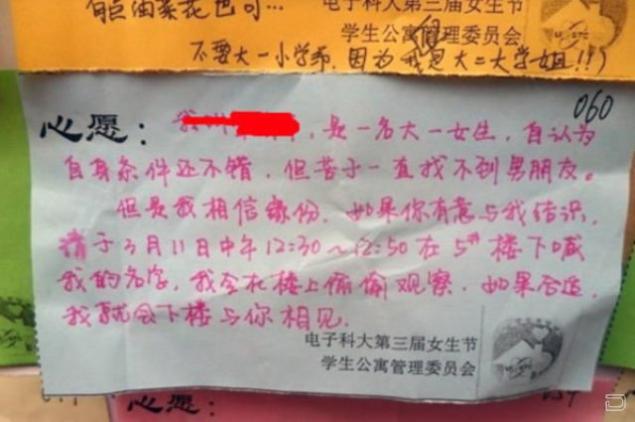 有自油菜花也可…
电子科大第三届女生节
学生公寓管理委员会
不要大一小学弟,因为我是大二大学姐!!)
060
心愿:
,是一名大一女生,自认为
自身条件还不错,但苦于一直找不到男朋友。
但是我相信缘份,如果你有意与我结识,
请于3月11日中午12:30~12:50在5#楼下喊
我的名字,我会在楼上偷偷观察,如果合适,
我就会下楼与你相见.
电子科大第三届女生节
学生公寓管理委员会
心愿: